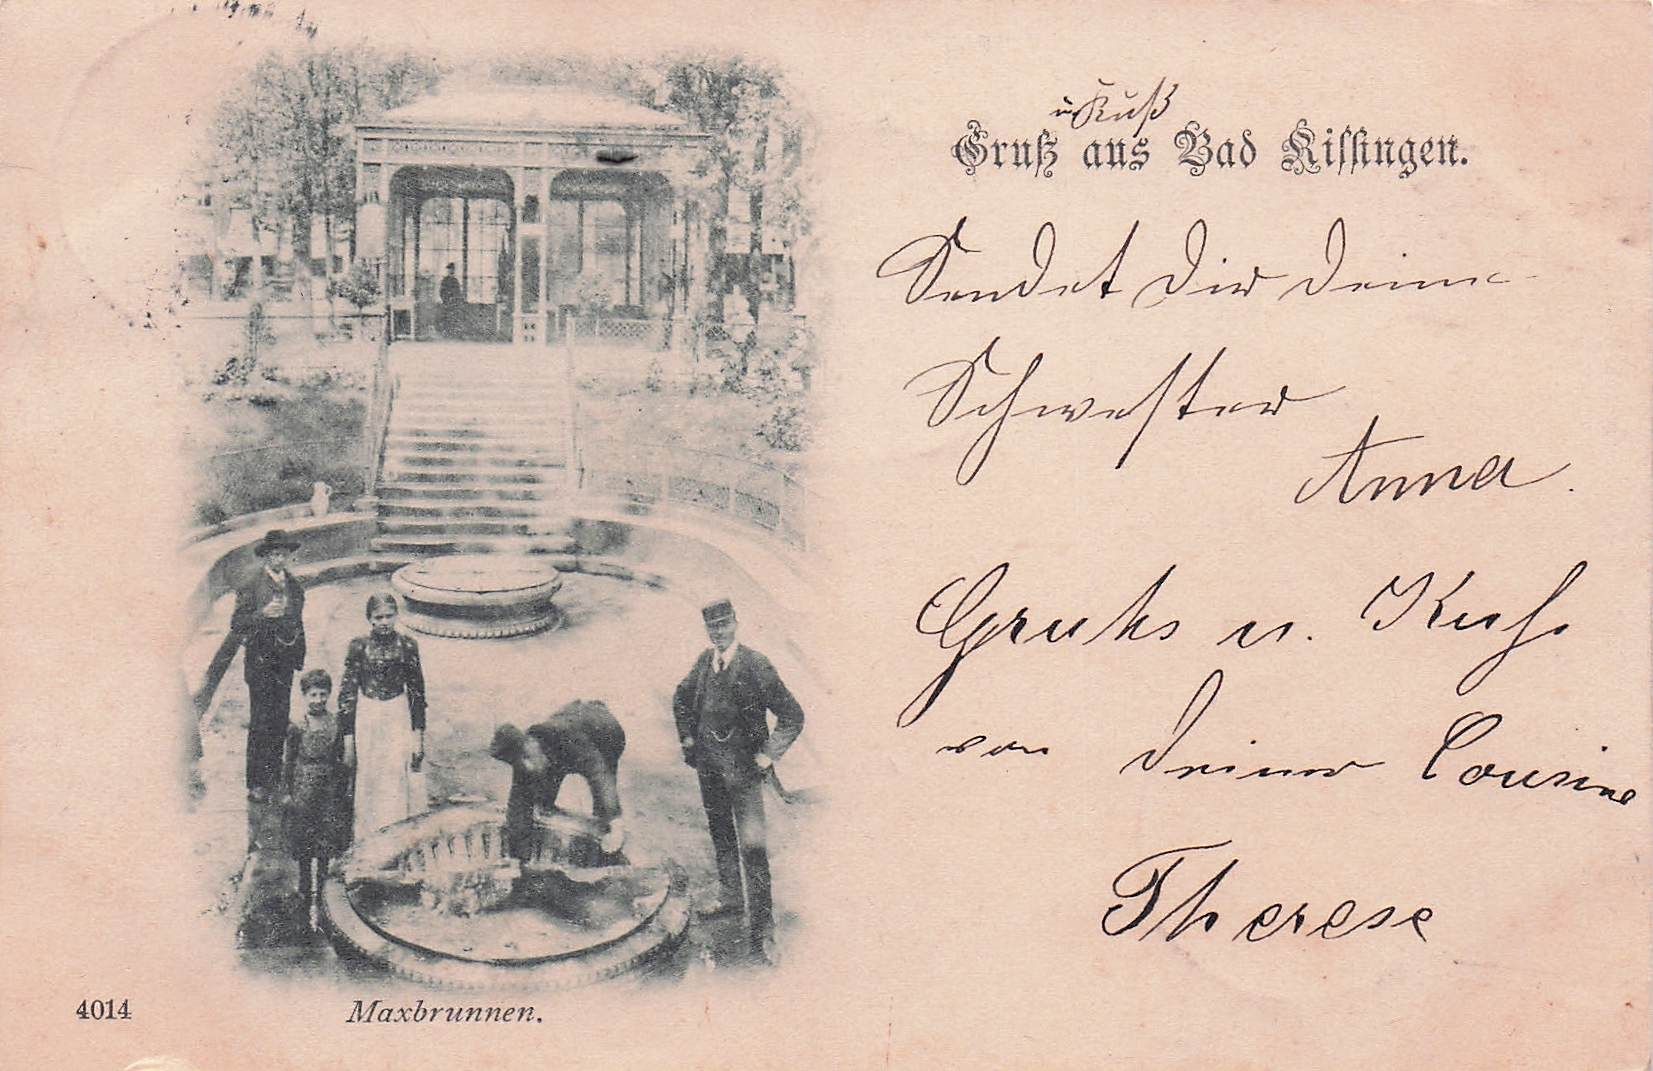 u Kuß
Gruß aus Bad Kissingen.
Sendet Dir deine
Schwester
Anna.
Gruhs u. Kuhs
von deiner Cousine
Therese
4014
Maxbrunnen.